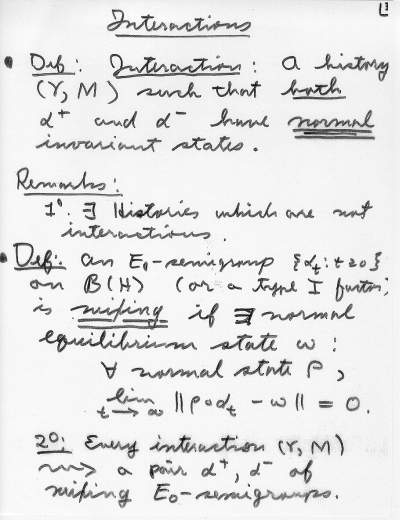 Interactions
• Def: Interaction: A history
(γ, M) such that both
α⁺ and α⁻ have normal
invariant states.
Remarks:
1º. ∃ Histories which are not
interactions.
• Def: An E₀-semigroup {α_t : t ≥ 0}
on B(H) (or a type I factor)
is mixing if ∃ normal
equilibrium state ω:
∀ normal state ρ,
lim_{t→∞} ||ρ∘α_t - ω|| = 0.
2º: Every interaction (γ, M)
⇝ a pair α⁺, α⁻ of
mixing E₀-semigroups.